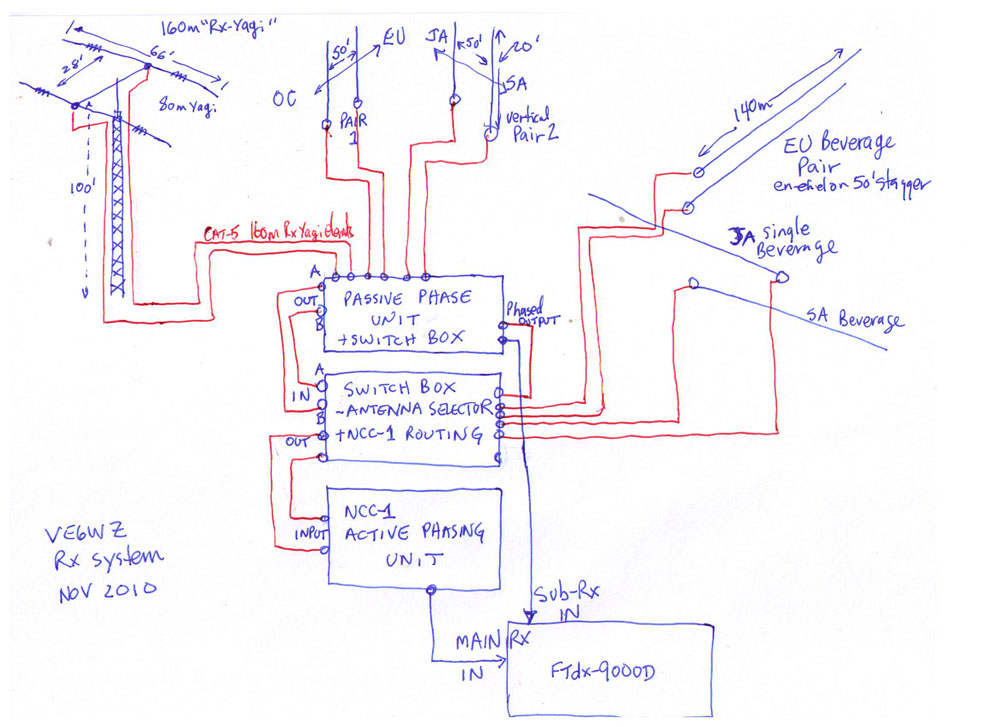 160m "Rx-Yagi"
66'
28'
80m Yagi
100'
50'
EU
OC
PAIR
1
JA
50'
20'
SA
vertical
Pair 2
140m
EU Beverage
Pair
en-echelon 50' stagger
JA single
Beverage
SA Beverage
CAT-5 160m Rx Yagi
A
OUT
B
PASSIVE PHASE
UNIT
+SWITCH BOX
Phased
OUTPUT
A
IN
B
OUT
SWITCH BOX
-ANTENNA SELECTOR
+NCC-1 ROUTING
INPUT
NCC-1
ACTIVE PHASING
UNIT
VE6WZ
Rx system
NOV 2010
Sub-Rx
IN
MAIN RX
IN
FTdx-9000D